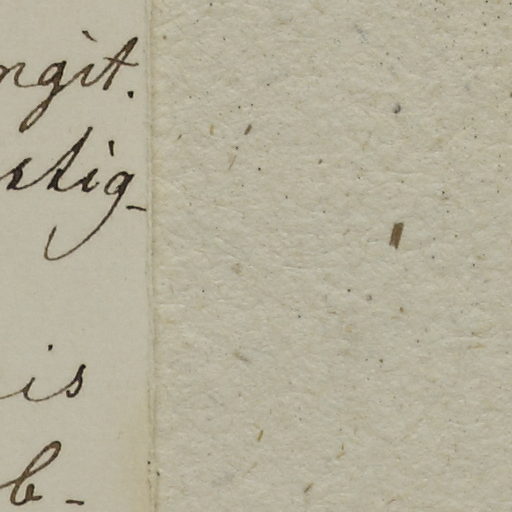 ngit.
stig-
is
b-